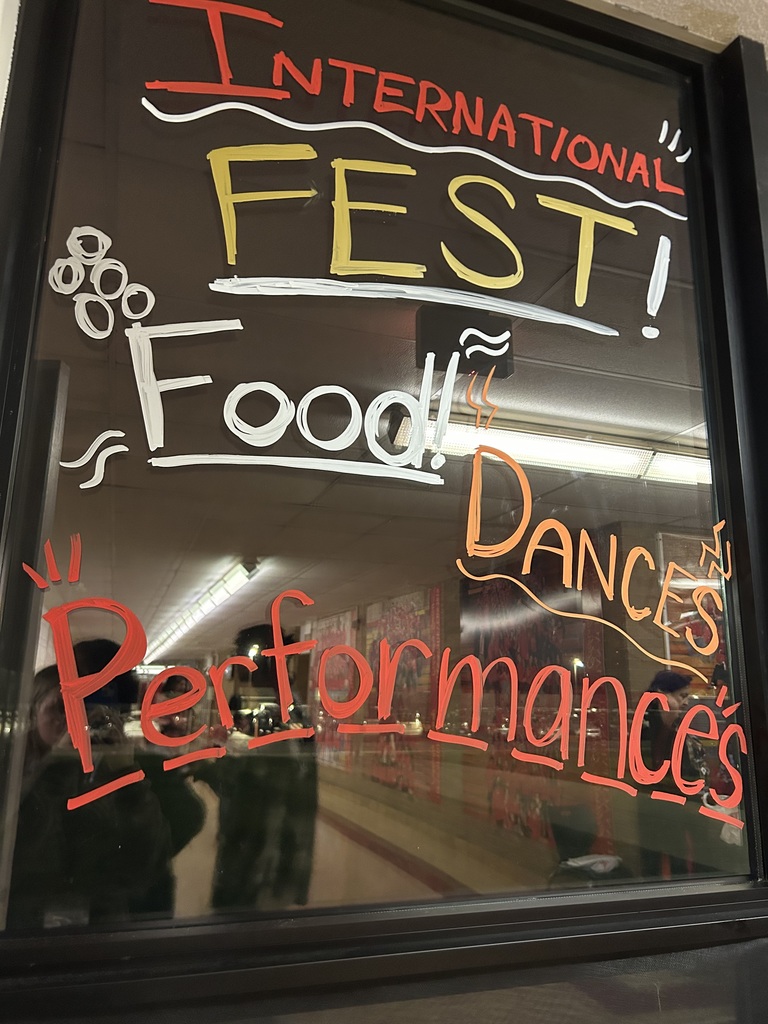 INTERNATIONAL
FEST!
Food!!
DANCES
Performances